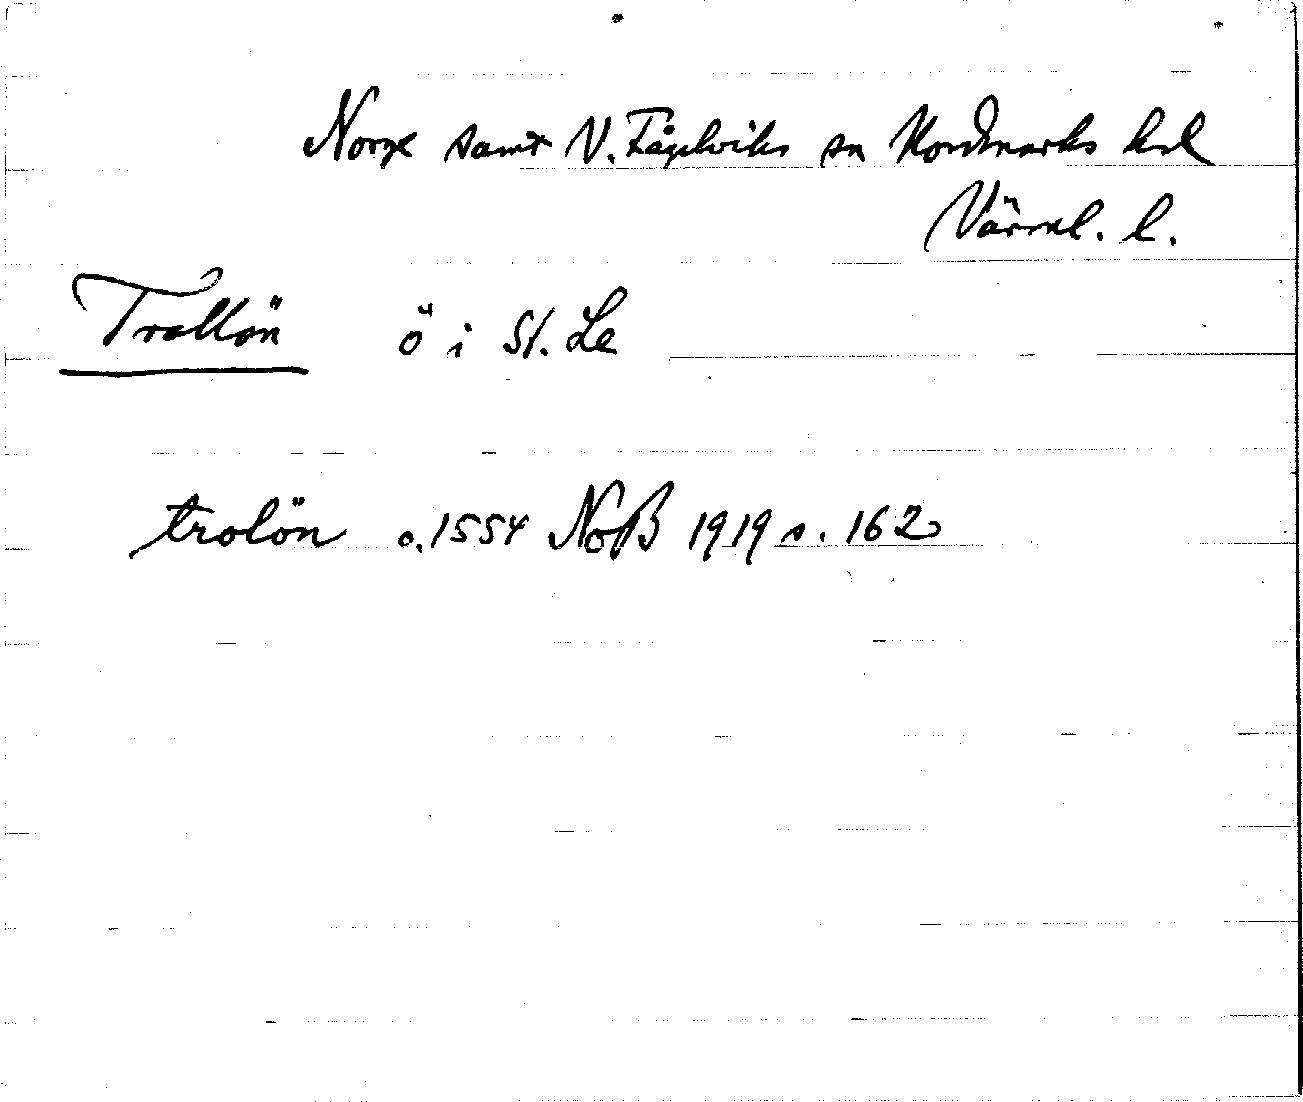 Norge samt V. Fågelviks sn Nordmarks hd
Värml. l.
Trollön ö i St. Le
trolön o. 1554 NoB 1919 s. 162